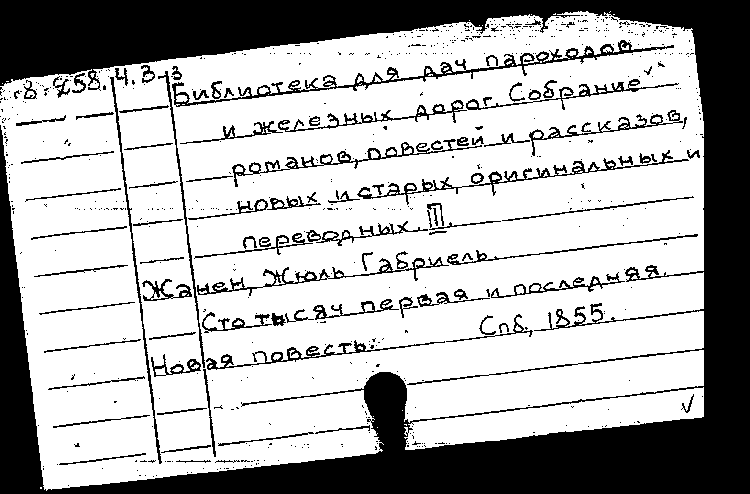 8.258.4.3-3
Библиотека для дач, пароходов
и железных дорог. Собрание
романов, повестей и рассказов,
новых и старых, оригинальных и
переводных. III.
Жанен, Жюль Габриель.
Сто тысяч первая и последняя.
Новая повесть. Спб., 1855.